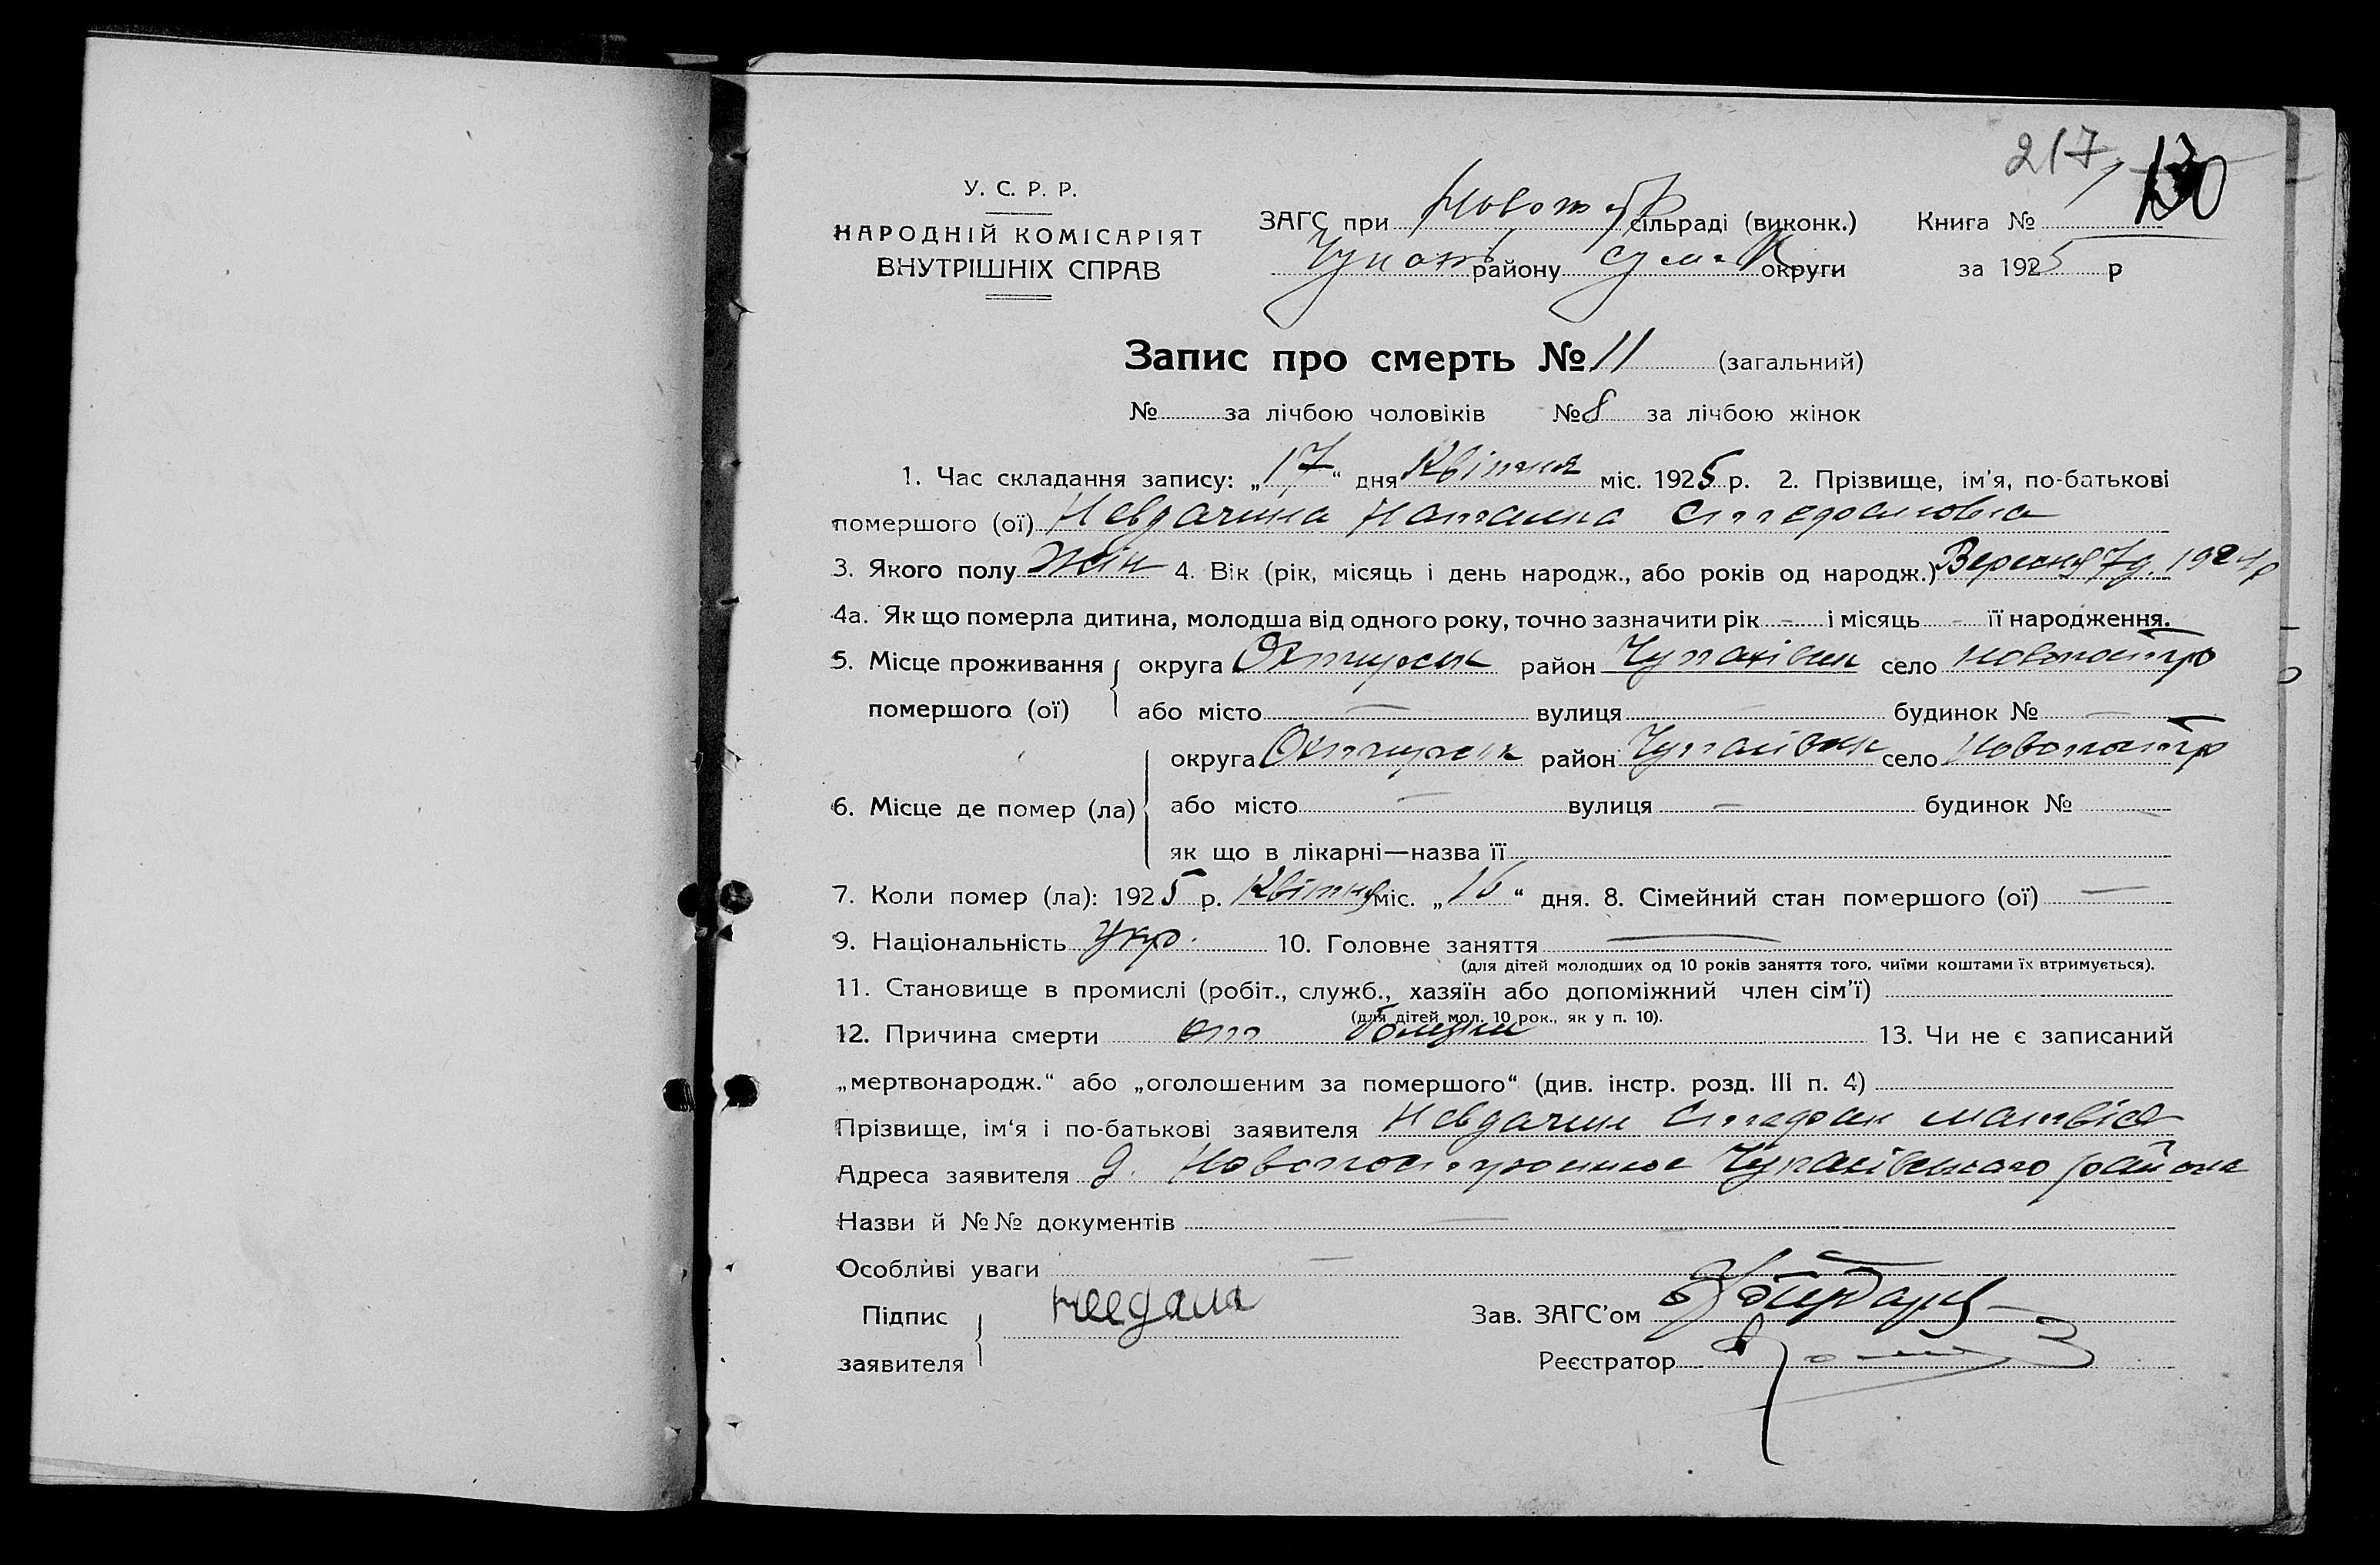 217
130
У. С. Р. Р.
НАРОДНІЙ КОМІСАРІЯТ
ВНУТРІШНІХ СПРАВ
ЗАГС при сільраді (виконк.) Книга №
району округи за 1925 р
Запис про смерть № 11 (загальний)
№ за лічбою чоловіків № 8 за лічбою жінок
1. Час складання запису: „17“ дня Квітня міс. 1925 р. 2. Прізвище, ім'я, по-батькові
помершого (ої) Невдачина Наталка Стефановна
3. Якого полу Жін 4. Вік (рік, місяць і день народж., або років од народж.) Вересня 7д. 1924р
4а. Як що померла дитина, молодша від одного року, точно зазначити рік — і місяць — її народження.
5. Місце проживання округа Охтирськ район Чупахівськ село Новопостр
помершого (ої) або місто — вулиця — будинок № —
округа Охтирськ район Чупахівськ село Новопостр
6. Місце де помер (ла) або місто — вулиця — будинок № —
як що в лікарні—назва її
7. Коли помер (ла): 1925 р. Квітня міс. „16“ дня. 8. Сімейний стан помершого (ої) —
9. Національність Укр. 10. Головне заняття —
(для дітей молодших од 10 років заняття того, чиїми коштами їх втримується).
11. Становище в промислі (робіт., служб., хазяїн або допоміжний член сім'ї)
(для дітей мол. 10 рок., як у п. 10).
12. Причина смерти от 13. Чи не є записаний
„мертвонародж.“ або „оголошеним за помершого“ (див. інстр. розд. III п. 4)
Прізвище, ім'я і по-батькові заявителя Невдачин Стефан Матвієв
Адреса заявителя д. Чупахівського района
Назви й №№ документів —
Особливі уваги —
Підпис Зав. ЗАГС'ом
заявителя Реєстратор